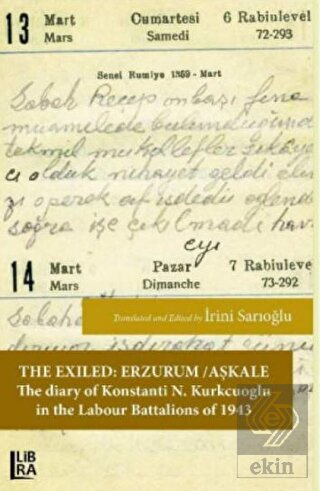 13 Mart Cumartesi 6 Rabiulevel
Mars Samedi 72-293
Senei Rumiye 1359 - Mart
Sabah Recep onbaşı fena
muamelede bulunduğundan
tekmil mükellefler şikâye
cı olduk nihayet geldi
zı operek af istedi
sonra işe çıkılmadı hava
eyi
14 Mart Pazar 7 Rabiuleve
Mars Dimanche 73-292
Sabah
Translated and Edited by İrini Sarıoğlu
THE EXILED: ERZURUM /AŞKALE
The diary of Konstanti N. Kurkcuoglu
in the Labour Battalions of 1943
LiBRA
ekin